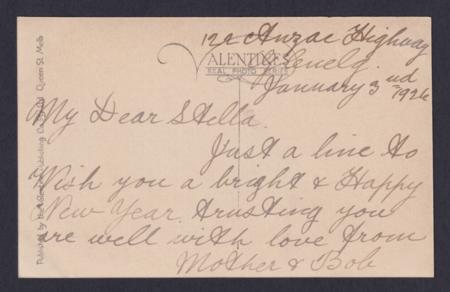 122 Anzac Highway
Glenelg.
January 3rd 1926
VALENTINE'S
REAL PHOTO SERIES
My Dear Stella.
Just a line to
Wish you a bright & Happy
New Year, trusting you
are well with love from
Mother & Bob
Publishing Queen St. Melb